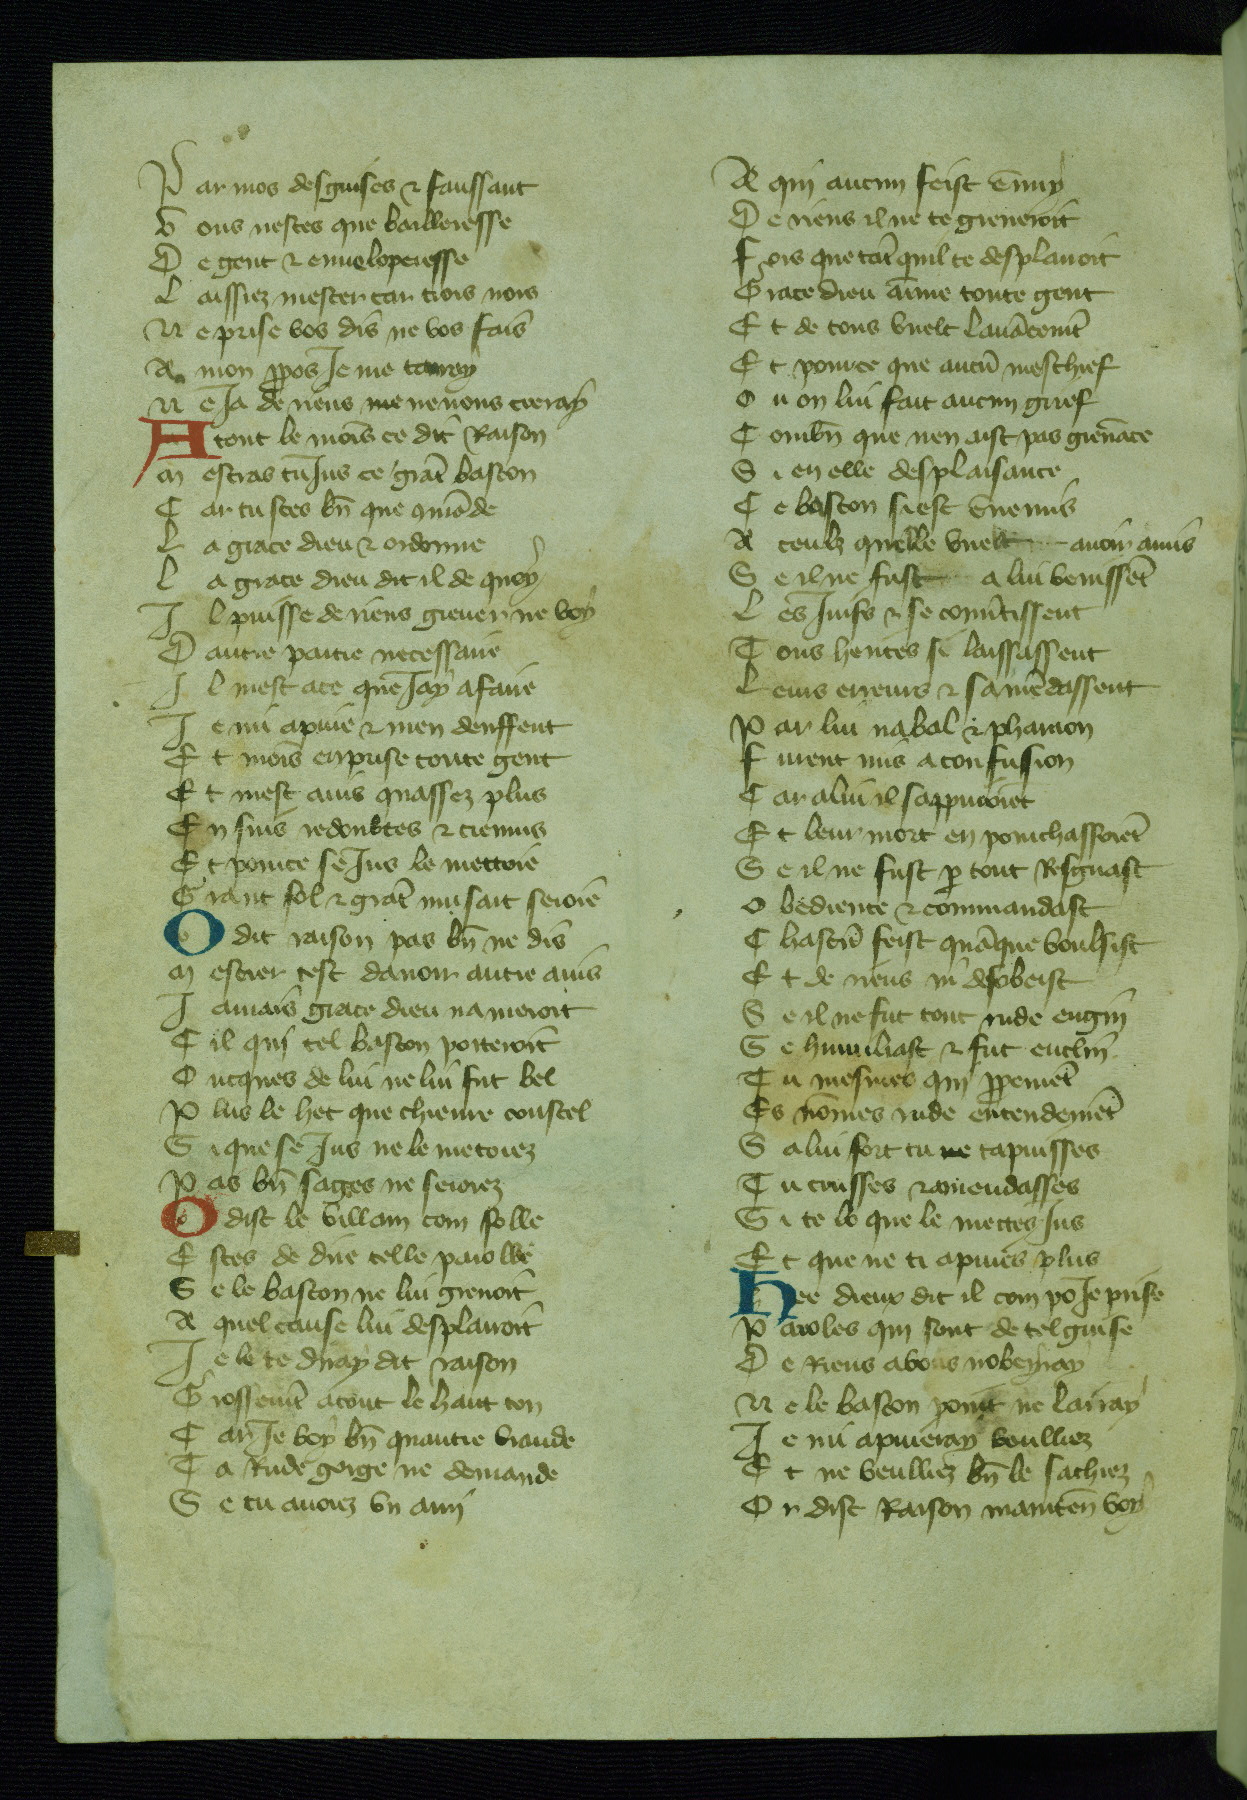 Par mos desguises & faussant
Vous nestes que bailleresse
De gent & enveloperesse
Laissiez mester car trois nois
Ne prise vos dis ne vos fais
A mon ppos Je me tanrray
Ne Ja de riens ne vous creray
A tout le mois ce dit Raison
Metras tu Jus ce grat baston
Car tu sces bn que 9mande
La grace dieu & ordonne
La grace dieu dit il de quoy
Il puisse de riens grever ne voy
Dautre partie necessaire
Il mest a ce que Jay a faire
Je mi apuie & men deuffent
Et mois en prise toute gent
Et mest avis quassez plus
En suis redoubtes & cremus
Et pource se Jus le mettoie
Grant fol & grat musart seroie
O dit raison pas bn ne dis
Mestier test davoir autre avis
Jamais grace dieu nameroit
Cil qui tel baston porteroit
Oncques de lui ne lui fut bel
Plus le het que chievre coustel
Si que se Jus ne le metoiez
Pas bn sages ne seroiez
O dist le villain com folle
Estes de dire telle parolle
Se le baston ne lui grevoit
A quel cause lui desplairoit
Je le te diray dit raison
Grossemt atout le haut ton
Car Je voy bn quautre viande
Ta Rude gorge ne demande
Se tu avoiez vn ami
A qui aucun feist ennuy
De riens il ne te greveroit
Fors que tat quil te desplairoit
Grace dieu aime toute gent
Et de tous vuelt lavacemt
Et pource que aucu meschief
Ou on lui fait aucun grief
Combn que nen aist pas grevace
Si en elle desplaisance
Ce baston si est ennemis
A ceulz quelle vuelt avoir amis
Se il ne fust a lui venisset
Les Juifs & se convtissent
Tous herites si laissassent
Leurs erreurs & samedassent
Par lui nabal & pharaon
Furent mis a confusion
Car a lui il sappuioiet
Et leur mort en pourchassoiet
Se il ne fust p tout Resgnast
Obedience & commandast
Chascu feist quaque voulsist
Et de riens ni desobeist
Se il ne fut tout rude engin
Se humiliast & fut enclin
Tu mesmes qui ppemet
Es nomes rude entendemet
Sa lui fort tu ne tapuisses
Tu crusses & amendasses
Si te lo que le mectes Jus
Et que ne ti apuies plus
Hee dieux dit il com po Je prise
Paroles qui sont de tel guise
De Riens a vous nobeiray
Ne le baston point ne lairay
Je mi apuieray voulliez
Et ne veulliez bn le sachiez
Or dist Raison mainten voy